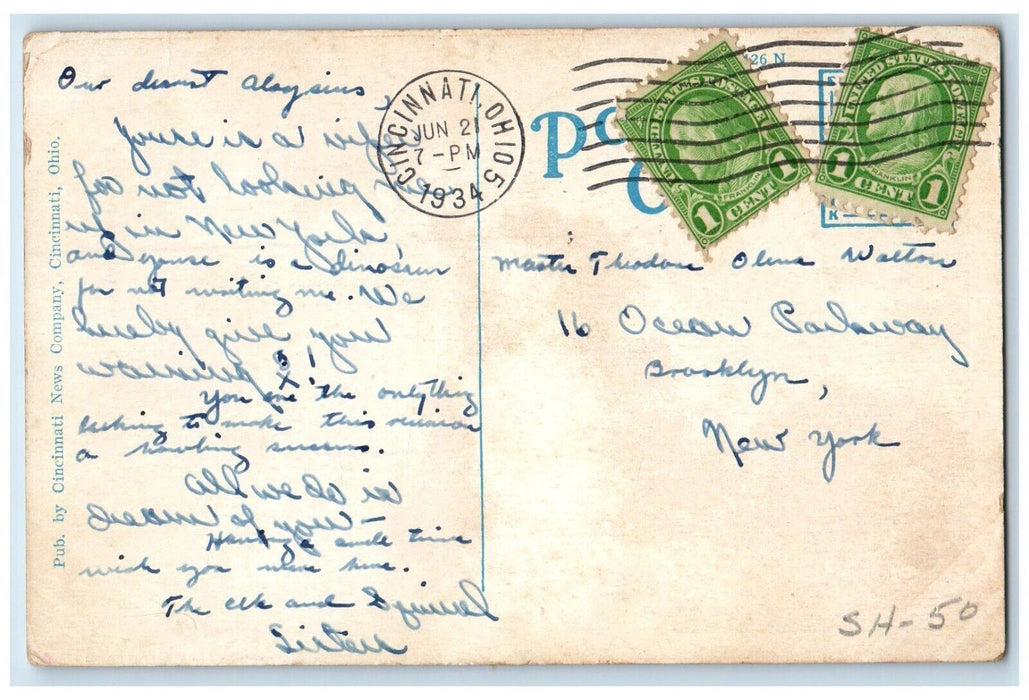 Our dearest Aloysius
You're is a
for not looking me
up in New York,
and youse is a dinosaur
for not writing me. We
hereby give you
warning !
You are the only thing
lacking to make this reunion
a howling success.
All we do is
dream of you —
Having a swell time
wish you were here.
The elk and Squirrel
Sisters
Pub. by Cincinnati News Company, Cincinnati, Ohio.
CINCINNATI, OHIO 5
JUN 2
7 - PM
1934
26 N
UNITED STATES POSTAGE
FRANKLIN
1 CENT 1
UNITED STATES POSTAGE
FRANKLIN
1 CENT 1
Master Theodore Walton
16 Ocean Parkway
Brooklyn,
New York
SH-50